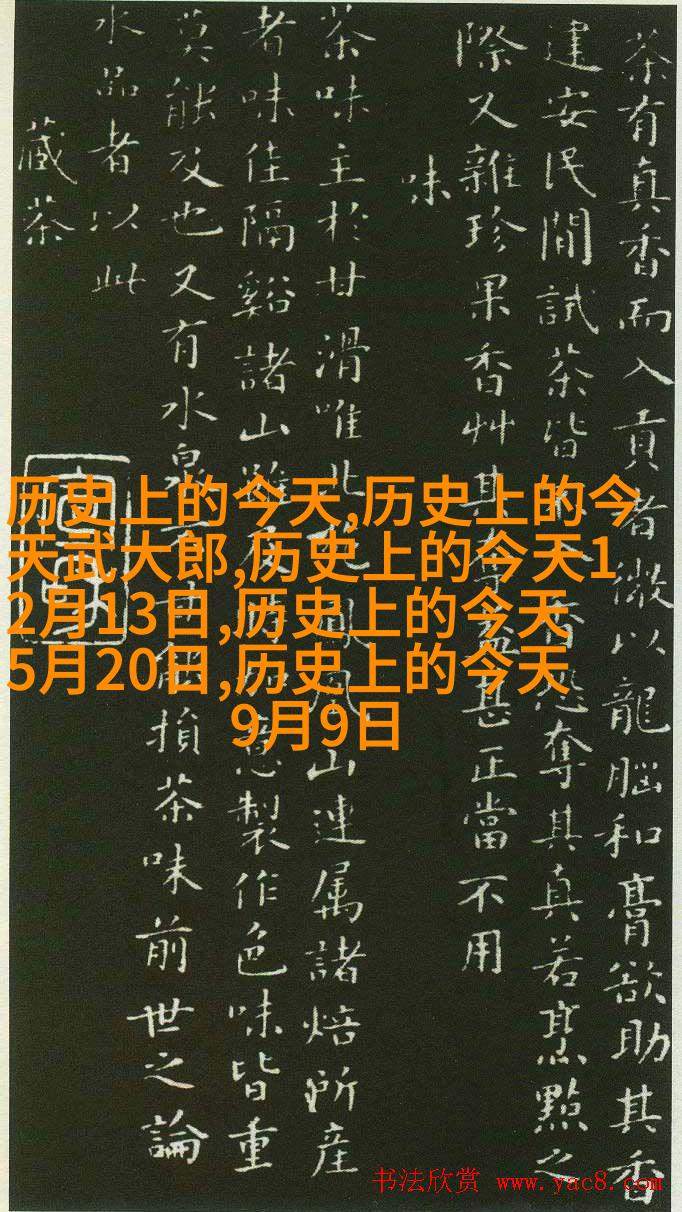 茶有真香而入貢者微以龍腦和膏欲助其香
建安民間試茶皆不入香恐奪其真若烹點之
際又雜珍果香艸其奪益甚正當不用
味
茶味主於甘滑唯北苑鳳凰山連属諸焙所産
者味佳隔谿諸山雖及時加意製作色味皆重
莫能及也又有水泉不甘能損茶味前世之論
水品者以此
藏茶
历史上的今天,历史上的今
天武大郎,历史上的今天1
2月13日,历史上的今天
5月20日,历史上的今天
9月9日
书法欣赏 www.yac8.com